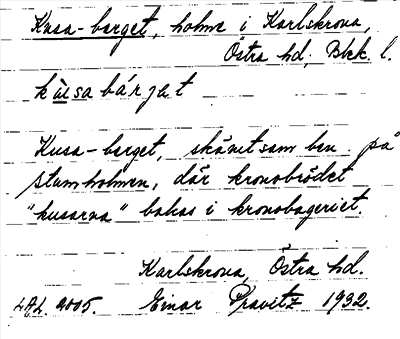 Kusa-berget, holme i Karlskrona,
Östra hd, Blek. l.
kùsabárjet
Kusa-berget, skämtsam ben. på
Stumholmen, där kronobrödet
"kusarna" bakas i kronobageriet.
Karlskrona, Östra hd.
LAL. 2005. Einar Pravitz 1932.